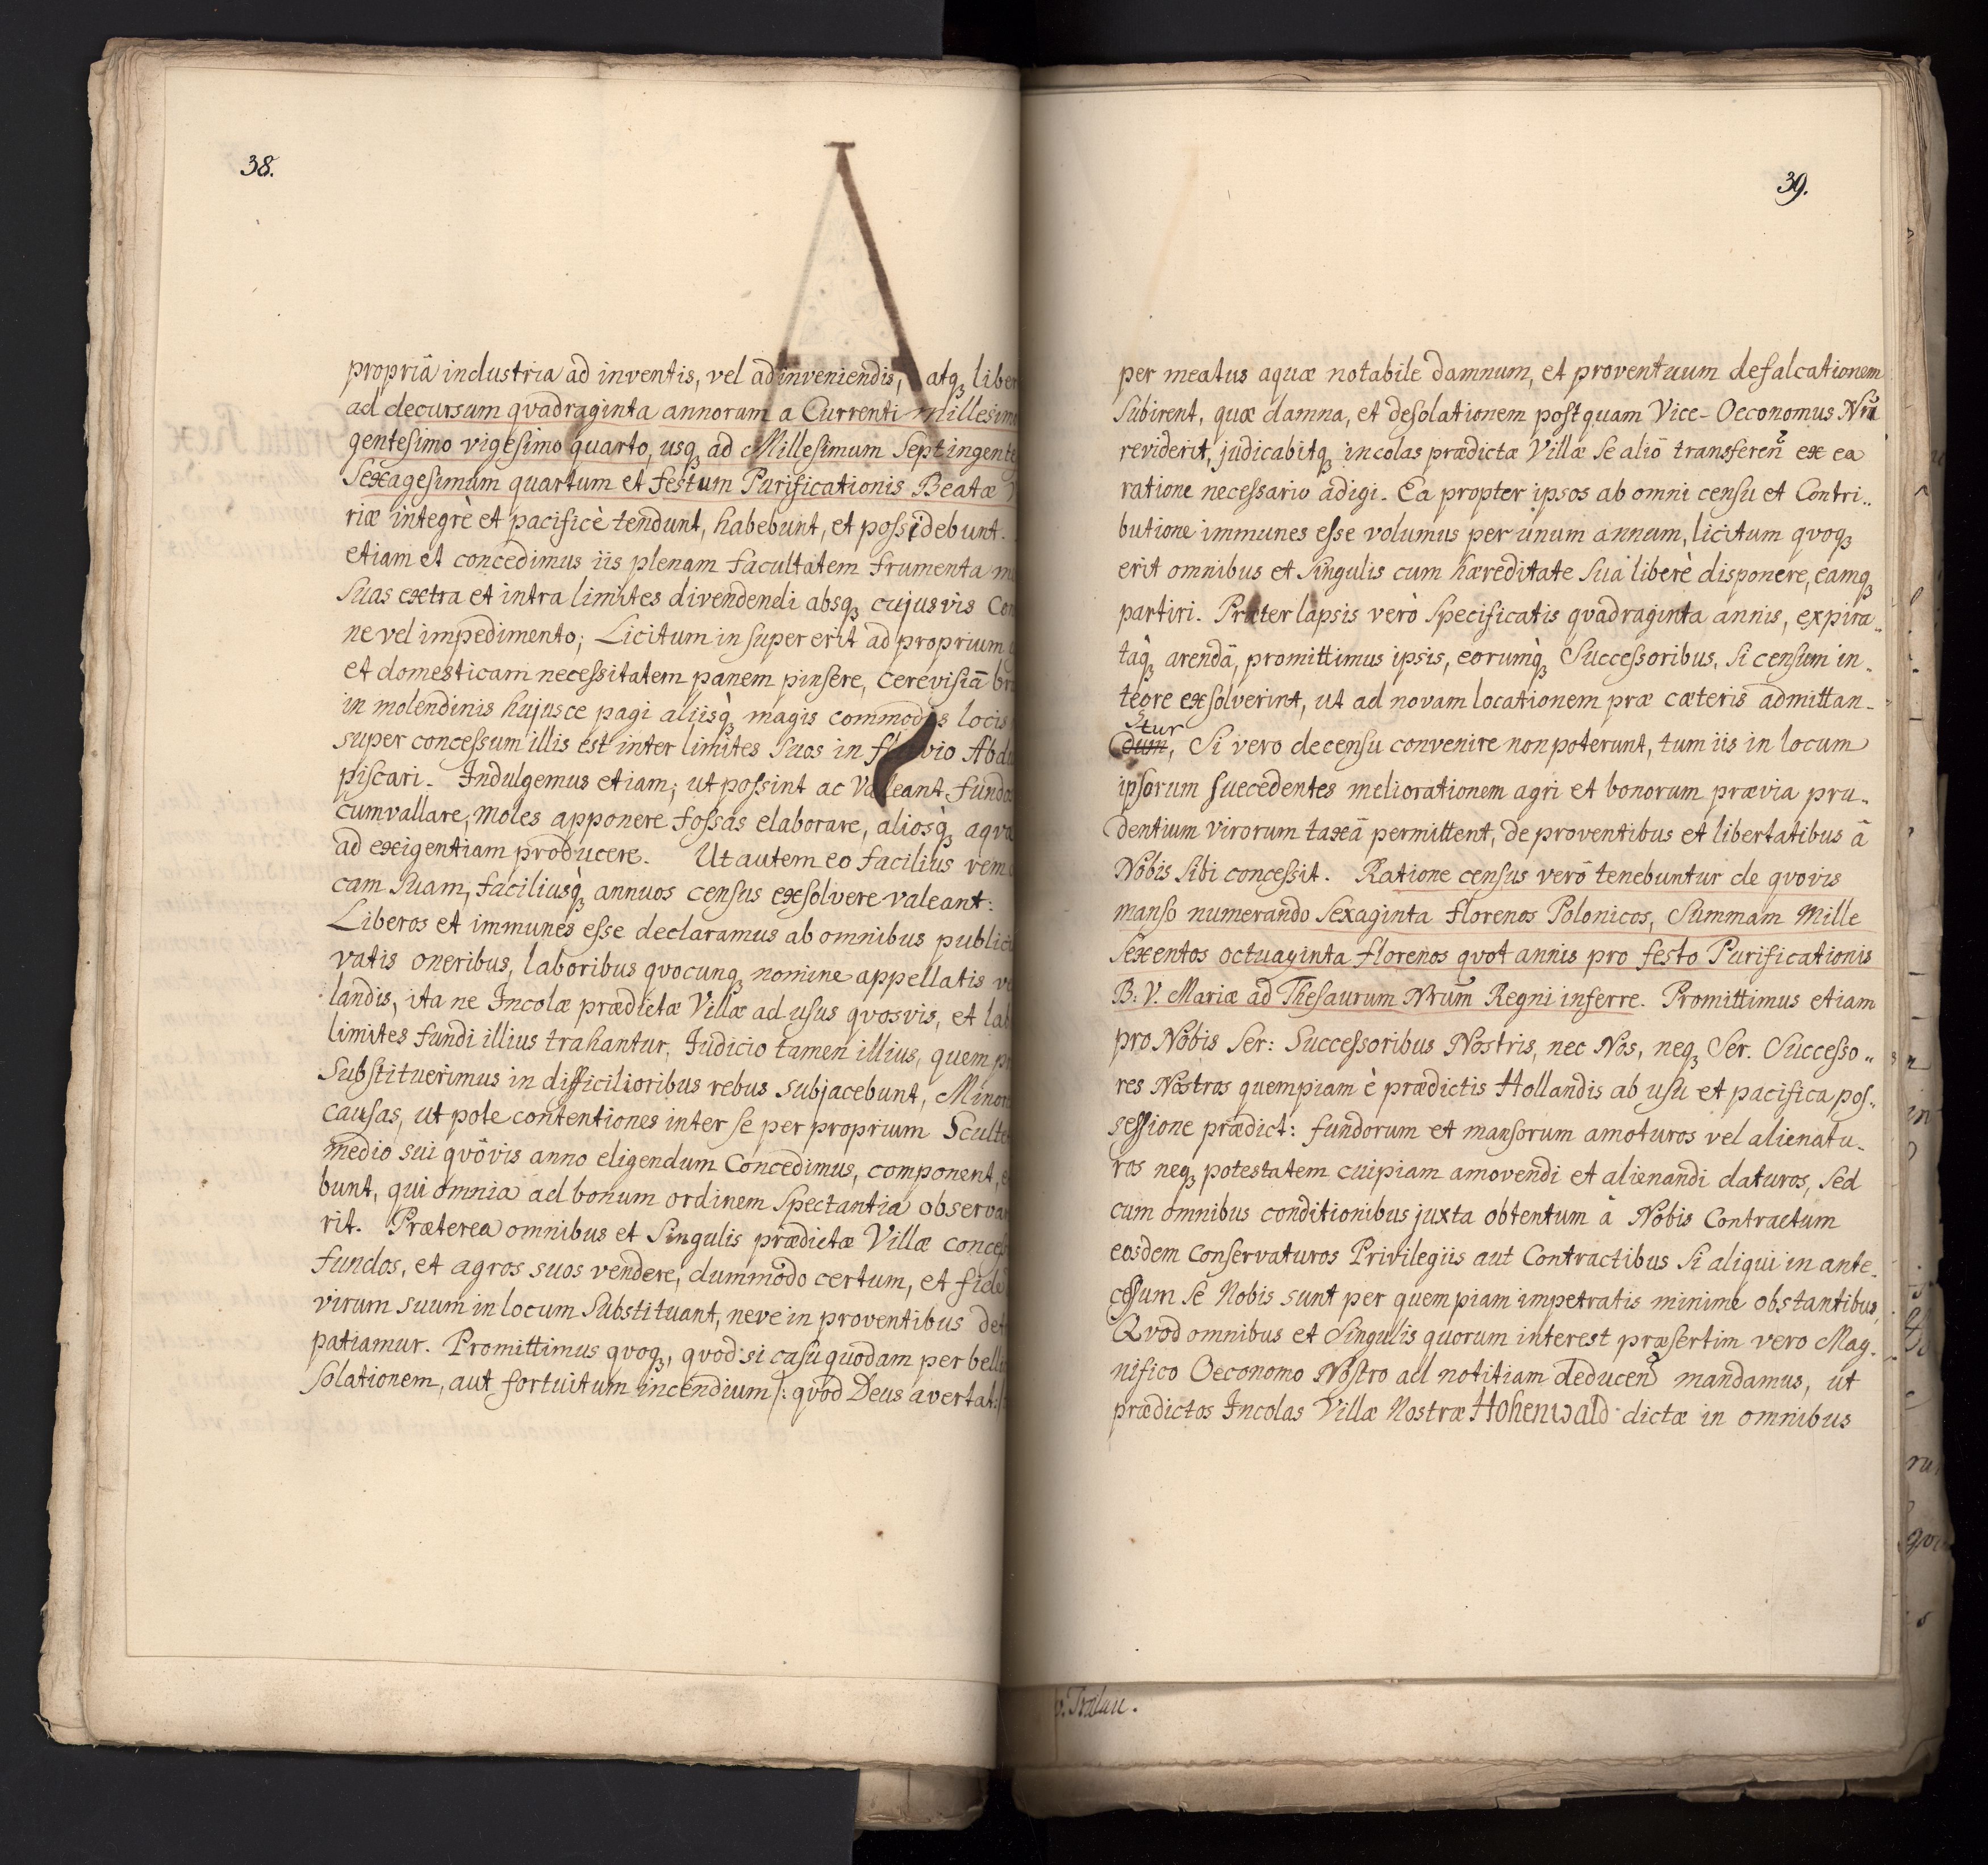 38.
propriâ industria ad inventis, vel adinveniendis, atq₃ liber
ad decursum qvadraginta annorum a Currenti Millesimo
gentesimo vigesimo quarto, usq₃ ad Millesimum Septingente
Sexagesimum quartum et festum Purificationis Beatæ
riæ integrè et pacificè tendunt, habebunt, et possidebunt.
etiam et concedimus iis plenam facultatem frumenta
Suas extra et intra limites divendendi absq₃ cujusvis Con
ne vel impedimento; Licitum in super erit ad proprium
et domesticam necessitatem panem pinsere, cerevisiā
in molendinis hujusce pagi aliisq̀₃ magis commodis locis
super concessum illis est inter limites Suos in fluvio
piscari. Indulgemus etiam, ut possint ac Valeant fundos
cumvallare, moles apponere fossas elaborare, aliosq̀₃ aqvæ
ad exigentiam producere. Ut autem eo facilius rem
cam Suam, faciliusq̀₃ annuos census exsolvere valeant:
Liberos et immunes esse declaramus ab omnibus public
vatis oneribus, laboribus qvocunq₃ nomine appellatis
landis, ita ne Incolæ prædictæ Villæ ad usus qvosvis, et lab
limites fundi illius trahantur, Iudicio tamen illius, quem
Substituerimus in difficilioribus rebus subjacebunt, Minor
causas, ut pote contentiones inter se per proprium Sculte
medio sui qvôvis anno eligendum Concedimus, component,
bunt, qui omnia ad bonum ordinem Spectantia observa
rit. Præterea omnibus et Singulis prædictæ Villæ conces
fundos, et agros suos vendere, dummodo certum, et fide
virum suum in locum Substituant, neve in proventibus det
patiamur. Promittimus qvoq₃, qvod si casu quodam per belli
Solationem, aut fortuitum incendium /: qvod Deus avertat:/
39.
per meatus aquæ notabile damnum, et proventuum defalcationem
Subirent, quæ damna, et desolationem postquam Vice-Oeconomus Nr̃i
reviderit, judicabitq₃ incolas prædictæ Villæ se aliò transferen̄ ex ea
ratione necessario adigi. Ea propter ipsos ab omni censu et Contri„
butione immunes esse volumus per unum annum, licitum qvoq₃
erit omnibus et Singulis cum hæreditate Sua liberè disponere, eamq₃
partiri. Præter lapsis verò Specificatis qvadraginta annis, expira„
taq̀₃ arendâ, promittimus ipsis, eorumq̀₃ Successoribus, si censum in„
tegre exsolverint, ut ad novam locationem præ cæteris admittan„
tur
dum, Si vero de censu convenire non poterunt, tum iis in locum
ipsorum succedentes meliorationem agri et bonorum prævia pru„
dentium virorum taxâ permittent, de proventibus et libertatibus â
Nobis sibi concessit. Ratione census verò tenebuntur de qvovis
manso numerando Sexaginta florenos Polonicos, Summam Mille
Sexentos octuaginta florenos qvot annis pro festo Purificationis
B: V. Mariæ ad Thesaurum Nrum̄ Regni inferre. Promittimus etiam
pro Nobis Ser: Successoribus Nostris, nec Nos, neq₃ Ser. Successo„
res Nostros quempiam è prædictis Hollandis ab usu et pacifica pos„
sessione prædict: fundorum et mansorum amoturos vel alienatu„
ros neq₃ potestatem cuipiam amovendi et alienandi daturos, Sed
cum omnibus conditionibus juxta obtentum â Nobis Contractum
eosdem Conservaturos Privilegiis aut Contractibus Si aliqui in ante„
cessum Se Nobis sunt per quempiam impetratis minime obstantibus,
Qvod omnibus et Singulis quorum interest præsertim vero Mag„
nifico Oeconomo Nostro ad notitiam deducen̄d mandamus, ut
prædictos Incolas Villæ Nostræ Hohenwald dictæ in omnibus